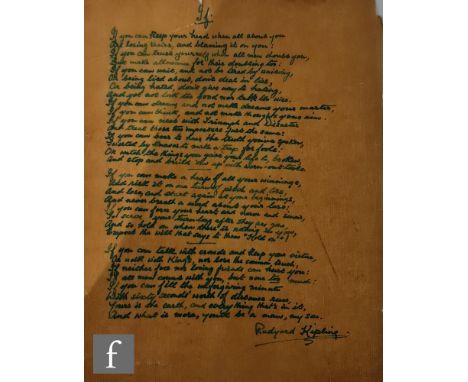 If.
If you can keep your head when all about you
Are losing theirs, and blaming it on you:
If you can trust yourself when all men doubt you,
But make allowance for their doubting too:
If you can wait, and not be tired by waiting,
Or being lied about, don't deal in lies,
Or being hated, don't give way to hating,
And yet not look too good nor talk too wise.
If you can dream and not make dreams your master,
If you can think, and not make thoughts your aim:
If you can meet with Triumph and Disaster
And treat those two impostors just the same:
If you can bear to hear the truth you've spoken,
Twisted by knaves to make a trap for fools:
Or watch the things you gave your life to, broken,
And stoop and build 'em up with worn-out tools.
If you can make a heap of all your winnings,
And risk it on one turn of pitch and toss,
And lose, and start again at your beginnings,
And never breath a word about your loss:
If you can force your heart and nerve and sinew,
To serve your turn long after they are gone,
And so hold on when there is nothing in you,
Except the will that says to them "Hold on"!
If you can talk with crowds and keep your virtue,
Or walk with Kings, nor lose the common touch;
If neither foes nor loving friends can hurt you:
If all men count with you, but none too much:
If you can fill the unforgiving minute
With sixty seconds' worth of distance run,
Yours is the earth, and everything that's in it,
And what is more, you'll be a man, my son.
Rudyard Kipling.
f